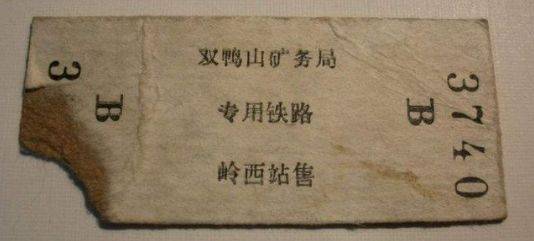 双鸭山矿务局
专用铁路
岭西站售
B 3740
B 3